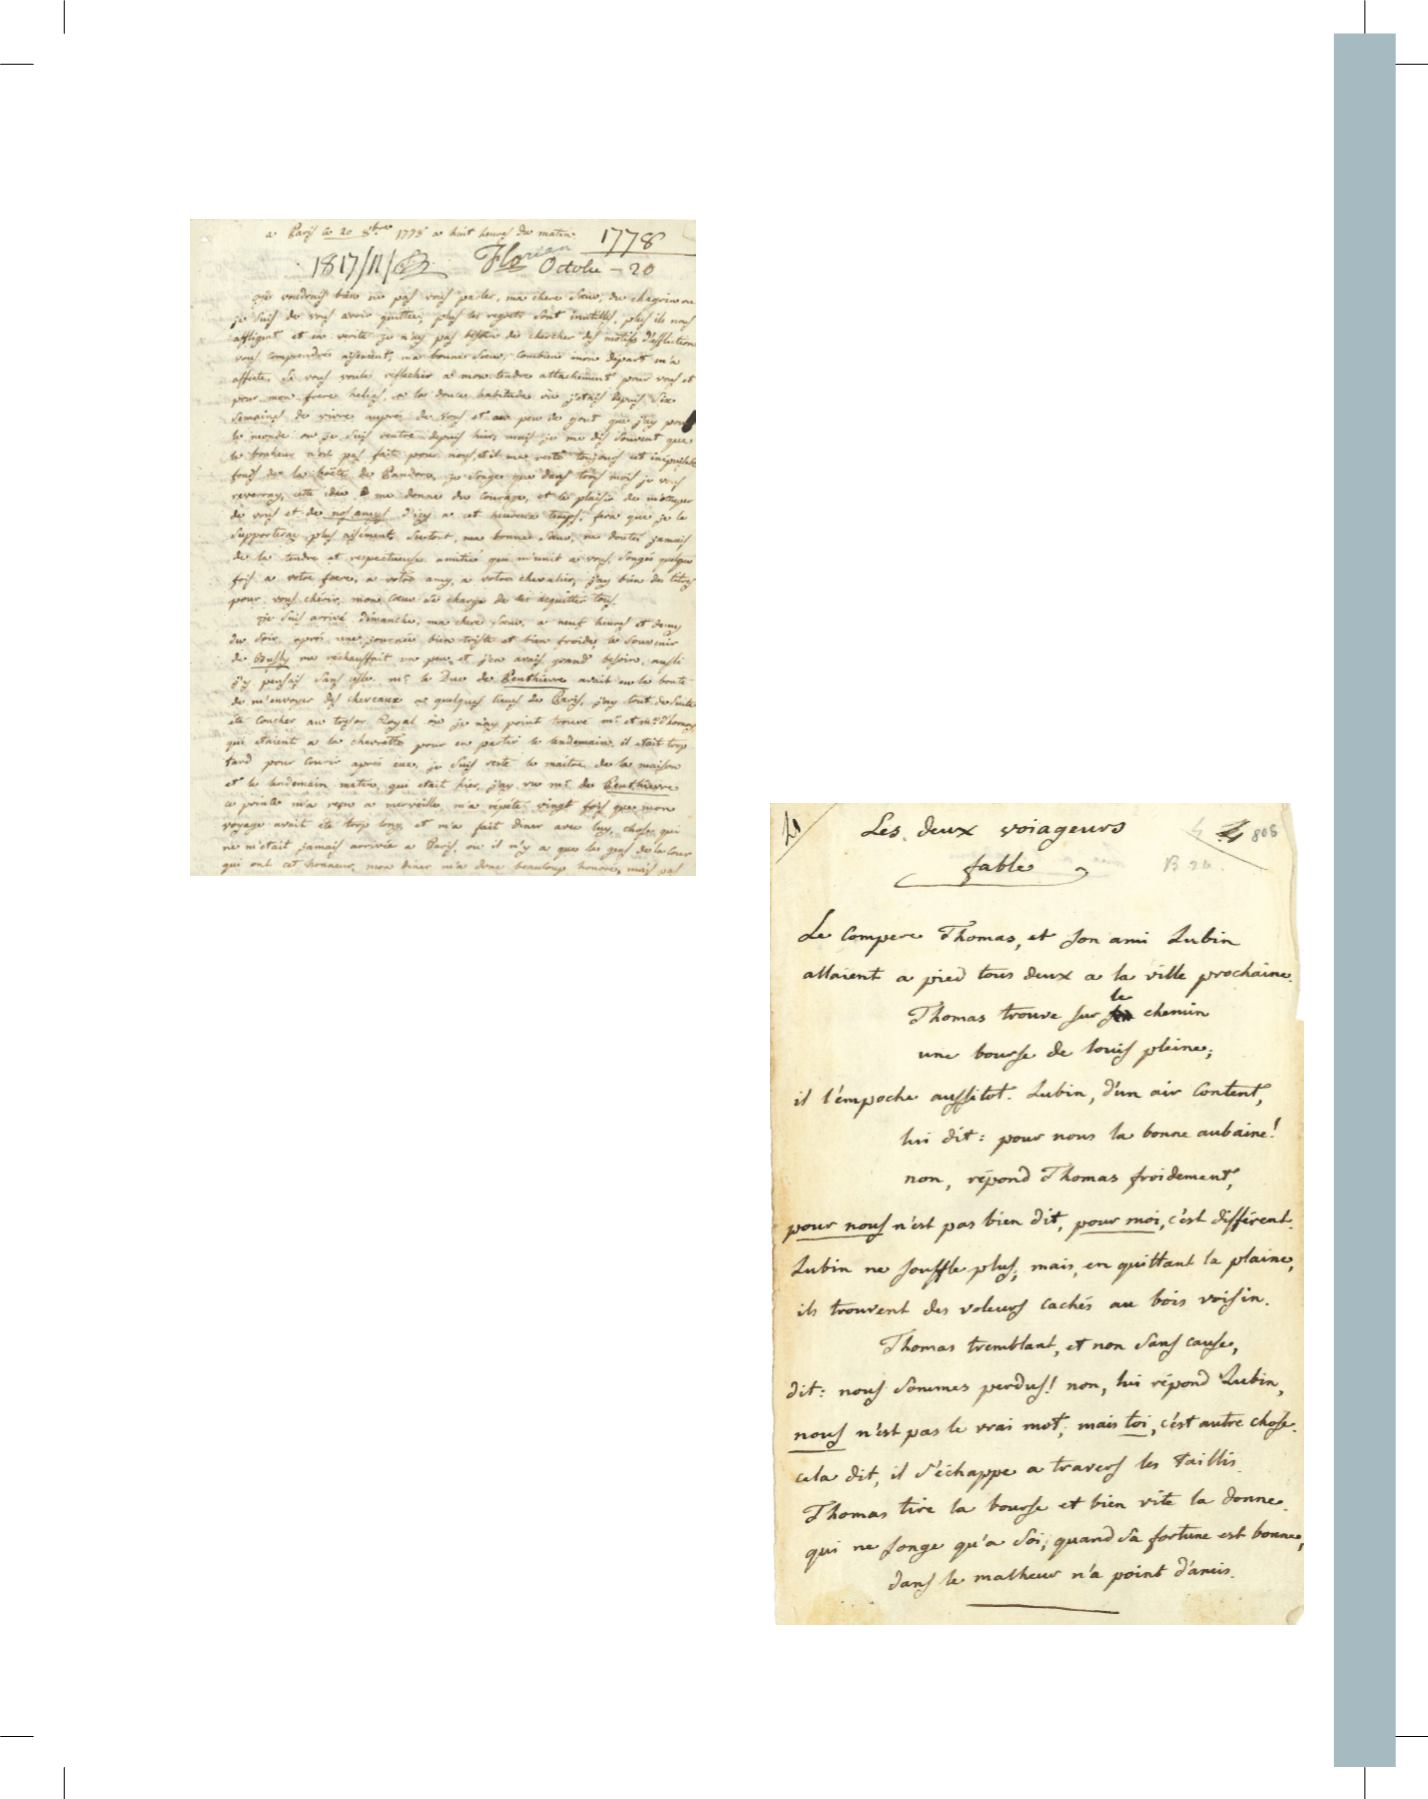 a Paris ce 20 8bre 1778 a huit heures du matin.
1778
1817/11/
Florian
Octobre - 20
je voudrais bien ne pas vous parler, ma chere Sœur, du chagrin ou
je suis de vous avoir quittée, plus les regrets sont inutilles, plus ils nous
affligent et en verité je n'ay pas besoin de chercher des motifs d'affliction
vous comprendrés aisement, ma bonne Sœur, combien mon depart m'a
affecté, Se vous voulé reflechir a mon tendre attachement pour vous et
pour mon frere helias, a la douce habitude ou j'etais depuis six
Semaines de vivre auprés de vous et au peu de gout que j'ay pour
le monde ou je suis rentré depuis hier, mais je me dis souvent que
le bonheur n'est pas fait pour nous, et il me reste toujours cet inépuisable
fond de la boëte de Pandore, je songe que dans trois mois je vous
reverray, cette idée me donne du courage, et le plaisir de m'occuper
de vous et de nos amys d'icy a cet heureux temps, fera que je le
supporteray plus aisément. Surtout, ma bonne Sœur, ne doutés jamais
de la tendre et respectueuse amitié qui m'unit a vous, songés quelque
fois a votre frere, a votre amy, a votre chevalier, j'ay bien des titres
pour vous chérir, mon cœur se charge de les acquitter tous.
je suis arrivé dimanche, ma chere Sœur, a neuf heures et demy
du soir, aprés une journée bien triste et bien froide, le souvenir
de Bussy me réchauffait un peu, et j'en avais grand besoin, aussi
j'y pensais sans cesse. mr. le Duc de Penthievre avait eu la bonté
de m'envoyer des chevaux a quelques lieues de Paris, j'ay tout de suite
été coucher au Royal ou je n'ay point trouvé mr. et me. d'hornoy
qui etaient a la chevrette pour en partir le lendemain, il etait trop
tard pour courir aprés eux, je suis resté le maitre de la maison
et le lendemain matin, qui etait hier, j'ay vu mr. de Penthievre
ce prince m'a reçu a merveille, m'a répété vingt fois que mon
voyage avait été trop long, et m'a fait diner avec luy, chose qui
ne m'était jamais arrivée a Paris, ou il n'y a que les gens de la Cour
qui ont cet honneur, mon diner m'a donc beaucoup honoré, mais pas
21
Les deux voiageurs
808
fable
B 20.
Le Compere Thomas, et son ami Lubin
allaient a pied tous deux a la ville prochaine.
le
Thomas trouve sur chemin
une bourse de louis pleine;
il l'empoche aussitot. Lubin, d'un air content,
lui dit: pour nous la bonne aubaine!
non, répond Thomas froidement,
pour nous n'est pas bien dit, pour moi, c'est différent.
Lubin ne souffle plus; mais, en quittant la plaine,
ils trouvent des voleurs cachés au bois voisin.
Thomas tremblant, et non sans cause,
dit: nous sommes perdus! non, lui répond Lubin,
nous n'est pas le vrai mot; mais toi, c'est autre chose.
cela dit, il s'échappe a travers les taillis.
Thomas tire la bourse et bien vite la donne.
qui ne songe qu'a soi, quand sa fortune est bonne,
dans le malheur n'a point d'amis.